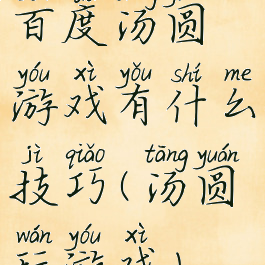 百度汤圆
yóu xì yǒu shí me
游戏有什么
jì qiǎo tāng yuán
技巧(汤圆
wán yóu xì
玩游戏)